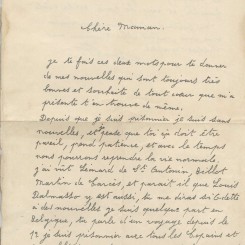 Chère Maman.
je te fais ces deux mots pour te donner
de mes nouvelles qui sont toujours très
bonnes et souhaite de tout cœur que ma
présente t'en trouve de même.
Depuis que je suis prisonnier je suis sans
nouvelles, et pense que toi ça doit être
pareil, prend patience, et avec le temps
nous pourrons reprendre la vie normale,
j'ai vu Lémard de St Antonin, Beillot
Martin de Carcès, et parait il que Louis
Dalmasso y est aussi, tu me diras si Odette
a des nouvelles je suis quelques part en
Belgique, tu parle d'un voyage depuis le
12 je suis prisonnier avec tous les copains et